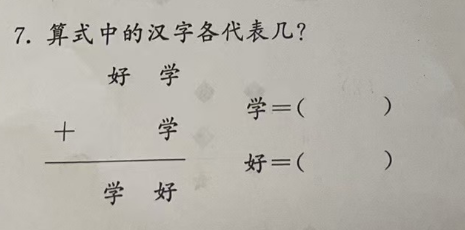 7. 算式中的汉字各代表几?
好 学
+ 学
学 好
学=( )
好=( )